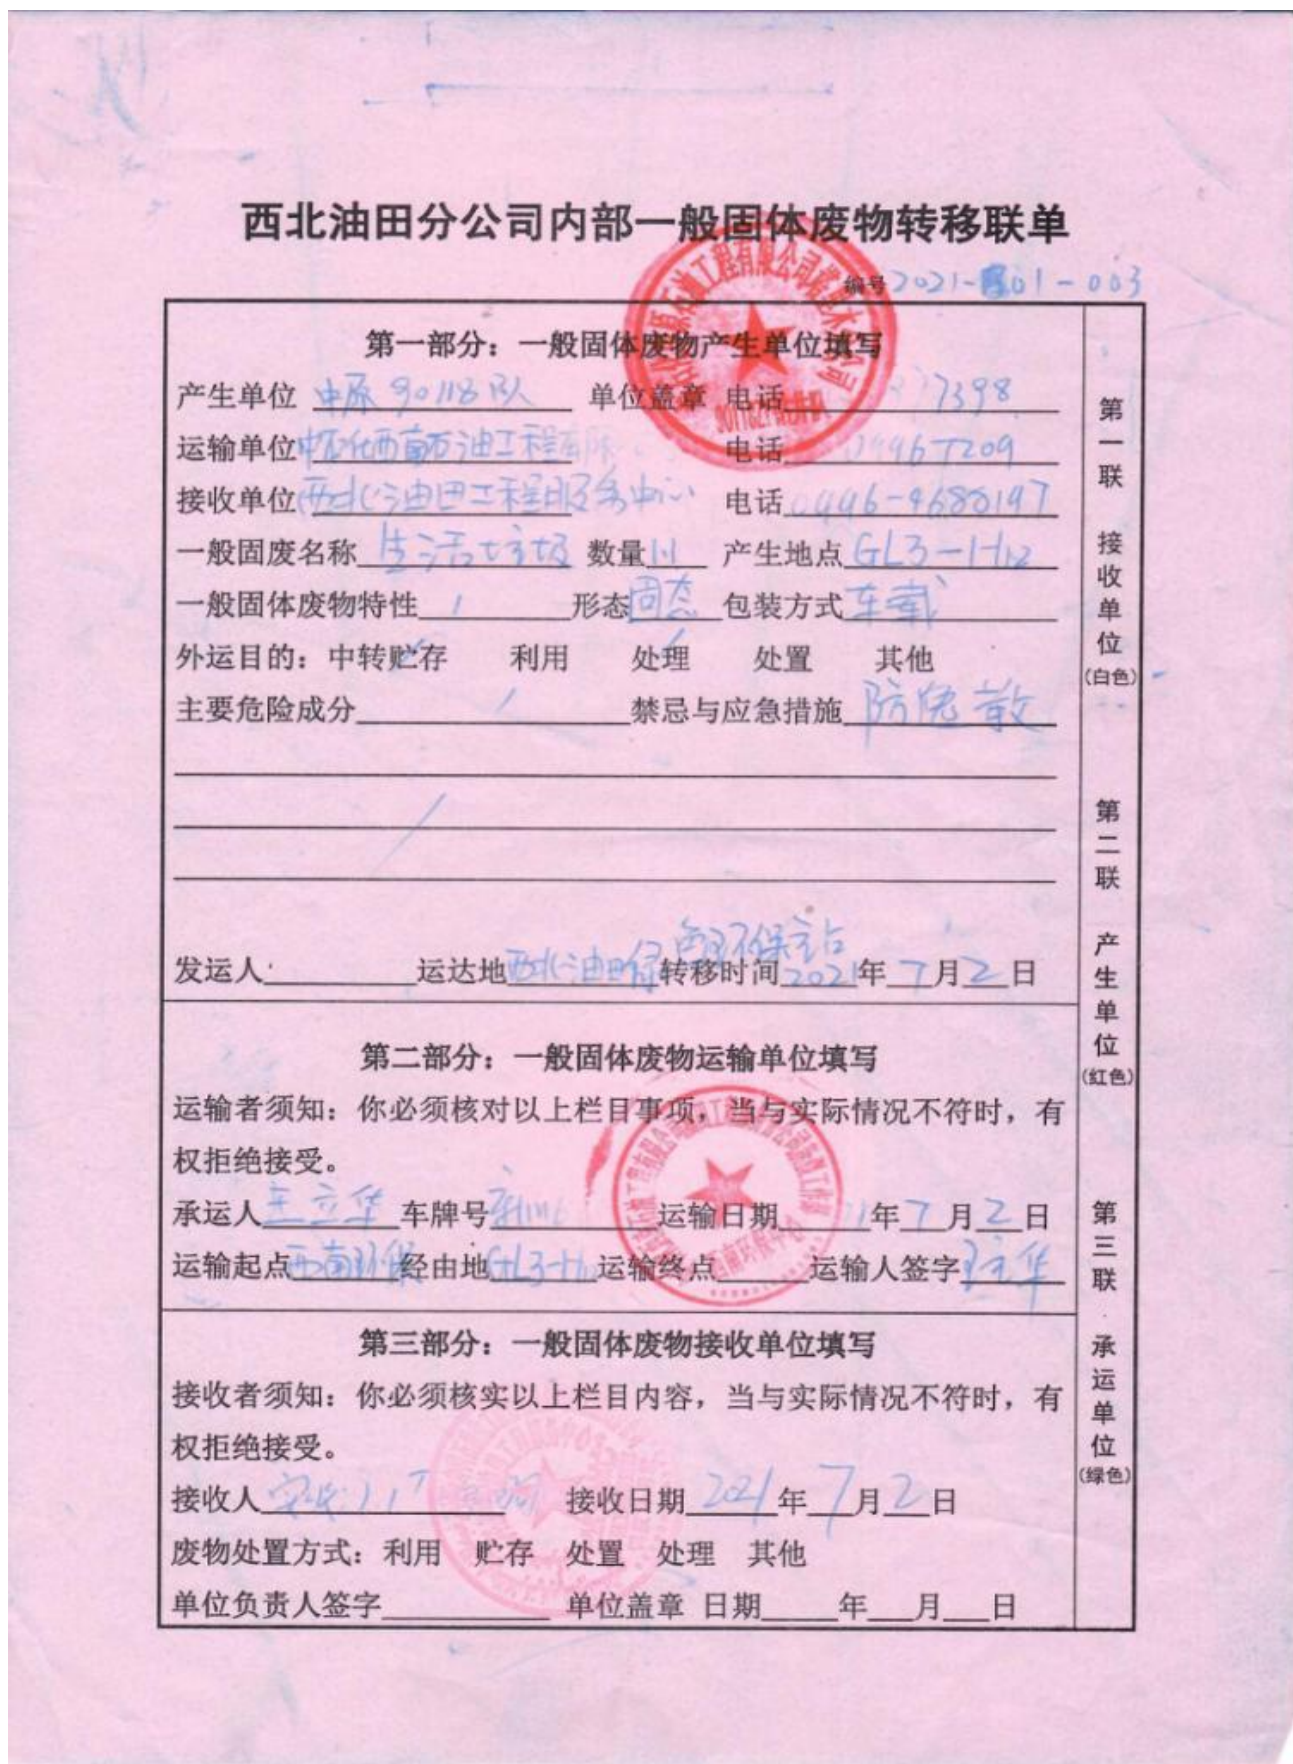 西北油田分公司内部一般固体废物转移联单
编号 2021-01-003
第一部分：一般固体废物产生单位填写
产生单位 中原90118队 单位盖章 电话 7398
运输单位 西南石油工程有限 电话 0996 7209
接收单位 西北油田工程服务中心 电话 0996-4688197
一般固废名称 生活垃圾 数量 产生地点 GL3-1H
一般固体废物特性 / 形态 固态 包装方式 车载
外运目的：中转贮存 利用 处理 处置 其他
主要危险成分 / 禁忌与应急措施 防 散
/
环保站
发运人 运达地 西北油田 转移时间 2021 年 7 月 2 日
第二部分：一般固体废物运输单位填写
运输者须知：你必须核对以上栏目事项，当与实际情况不符时，有
权拒绝接受。
承运人 王立华 车牌号 运输日期 年 7 月 2 日
运输起点 西南环保 经由地 GL3- 运输终点 运输人签字 王立华
第三部分：一般固体废物接收单位填写
接收者须知：你必须核实以上栏目内容，当与实际情况不符时，有
权拒绝接受。
接收人 接收日期 2021 年 7 月 2 日
废物处置方式：利用 贮存 处置 处理 其他
单位负责人签字 单位盖章 日期 年 月 日
第一联 接收单位（白色）
第二联 产生单位（红色）
第三联 承运单位（绿色）